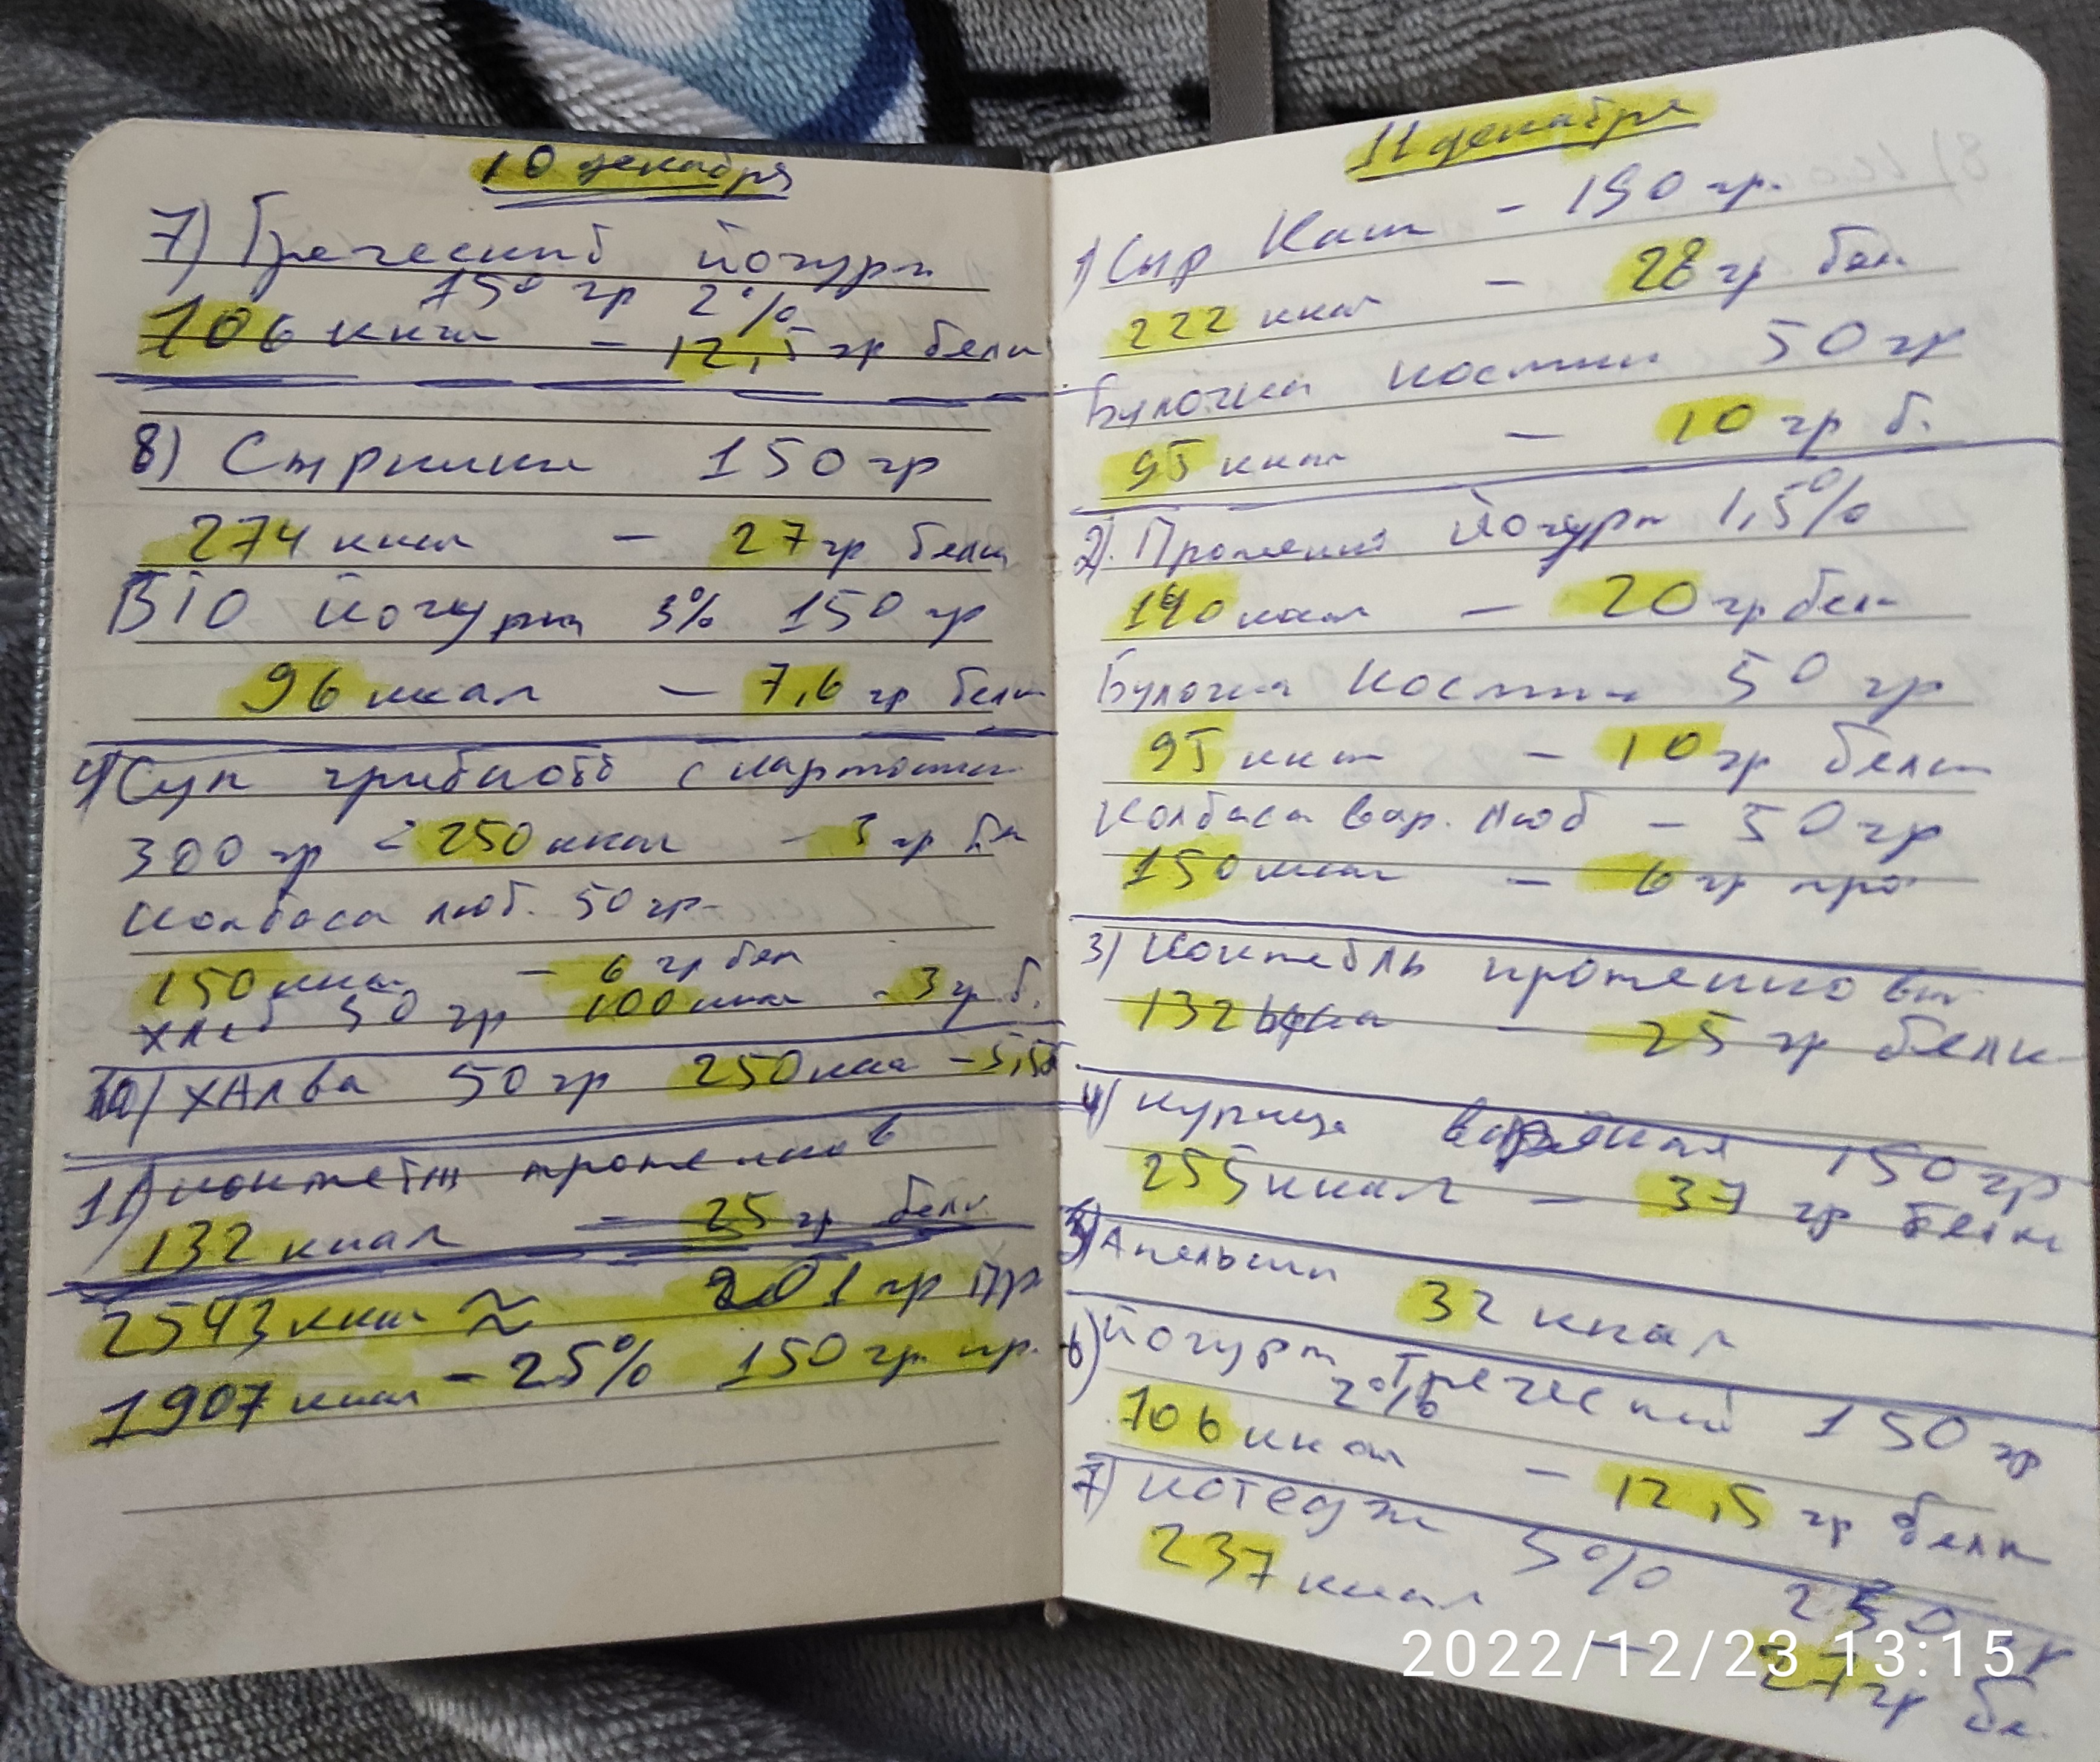 10 декабря
7) Греческий йогурт
150 гр 2%
106 ккал - 12,5 гр белк
8) Сырники 150 гр
274 ккал - 27 гр белк
BIO йогурт 3% 150 гр
96 ккал - 7,6 гр белк
9) Суп грибной с картошк
300 гр = 250 ккал - 3 гр бел
Колбаса люб. 50 гр-
150 ккал - 6 гр бел
хлеб 50 гр 100 ккал - 3 гр б.
10) ХАлва 50 гр 250 ккал -
11) коктейль протеинов
132 ккал - 25 гр белк
2543 ккал ≈ 201 гр пр
1907 ккал -25% 150 гр пр.
11 декабря
1) Сыр - 190 гр.
222 ккал - 28 гр бел
Булочка 50 гр
95 ккал - 10 гр б.
2). Протеин йогурт 1,5%
190 ккал - 20 гр бел
Булочка 50 гр
95 ккал - 10 гр белк
Колбаса вар. люб - 50 гр
150 ккал - 6 гр про
3) Коктейль протеинов
132 - 25 гр белк
4) курица варёная 150 гр
255 ккал - 37 гр белк
5) Апельсин 32 ккал
6) Йогурт Греческий 150 гр
2%
106 ккал - 12,5 гр белк
7) котедж 5% гр
237 ккал - 27 гр бе.
2022/12/23 13:15